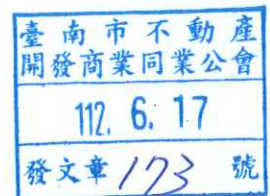 臺南市不動產
開發商業同業公會
112. 6. 17
發文章173號